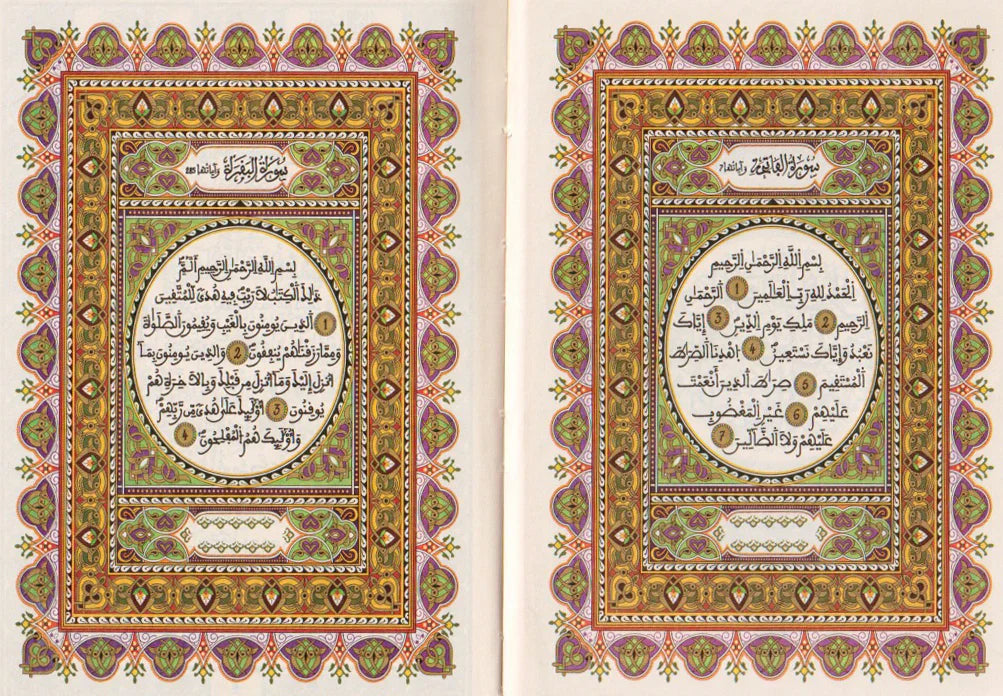 سورة الفاتحة وآياتها 7
بسم الله الرحمن الرحيم
الحمد لله رب العلمين 1 الرحمن
الرحيم 2 ملك يوم الدين 3 إياك
نعبد وإياك نستعين 4 اهدنا الصراط
المستقيم 5 صراط الذين أنعمت
عليهم 6 غير المغضوب
عليهم ولا الضالين 7
سورة البقرة وآياتها 285
بسم الله الرحمن الرحيم ألم
ذلك الكتاب لا ريب فيه هدى للمتقين
1 الذين يومنون بالغيب ويقيمون الصلوة
ومما رزقناهم ينفقون 2 والذين يومنون بما
أنزل إليك وما أنزل من قبلك وبالاخرة هم
يوقنون 3 أوليك على هدى من ربهم
وأوليك هم المفلحون 4